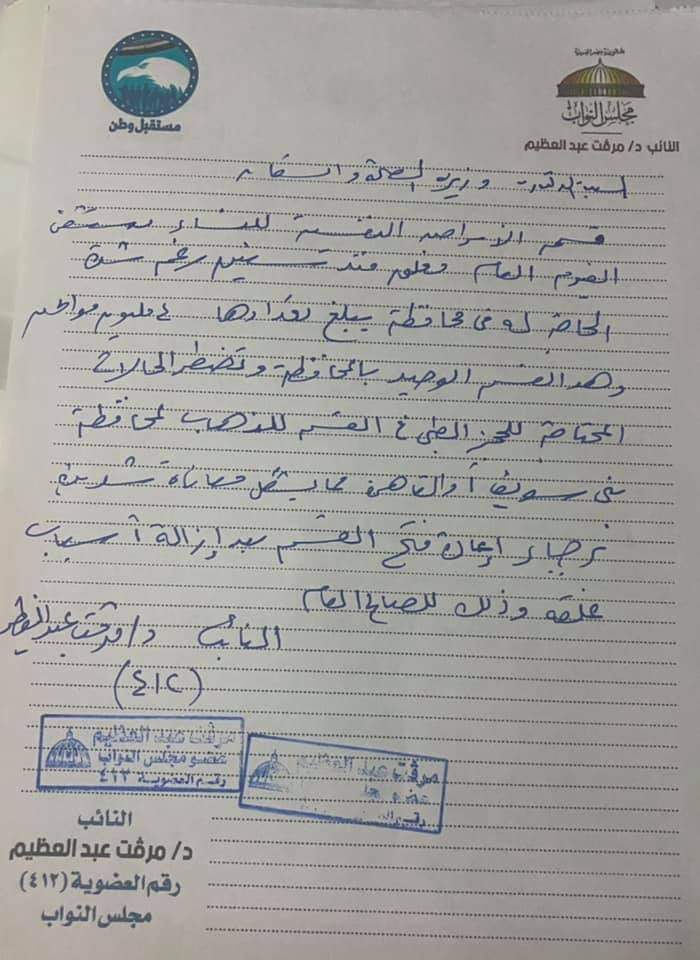 مستقبل وطن
جمهورية مصر العربية
مجلس النواب
النائب د/ مرڤت عبد العظيم
السيد الدكتورة وزيرة الصحة والسكان
قسم الأمراض النفسية للنساء بمستشفى
الفيوم العام مغلق منذ سنين رغم شدة
الحاجة له فى محافظة يبلغ تعدادها ٤ مليون مواطن
وهو القسم الوحيد بالمحافظة وتضطر الحالات
المحتاجة للحجز الطبى فى القسم للذهاب لمحافظة
بنى سويف أو القاهرة مما يشكل معاناة شديدة
برجاء إعادة فتح القسم بعد إزالة أسباب
غلقه وذلك للصالح العام
النائب د/ مرڤت عبد العظيم
(٤١٢)
مرڤت عبد العظيم
عضو مجلس النواب
رقم العضوية ٤١٢
مرڤت عبد العظيم
النائب
د/ مرڤت عبد العظيم
رقم العضوية (٤١٢)
مجلس النواب